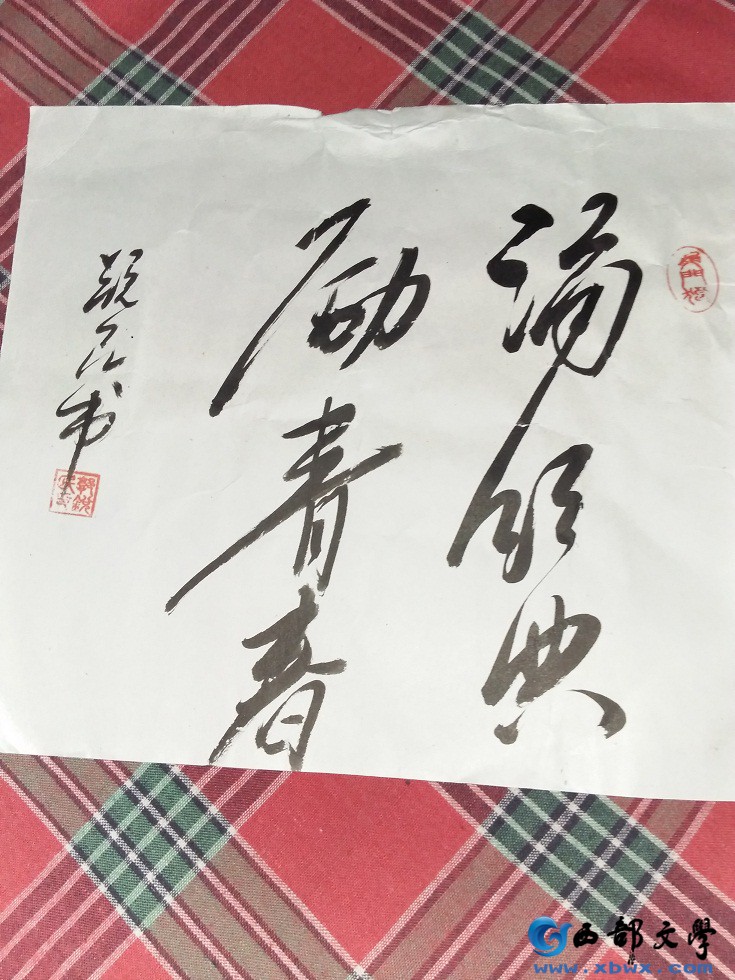 诵经典
励青春
书
西部文學
www.xbwx.com